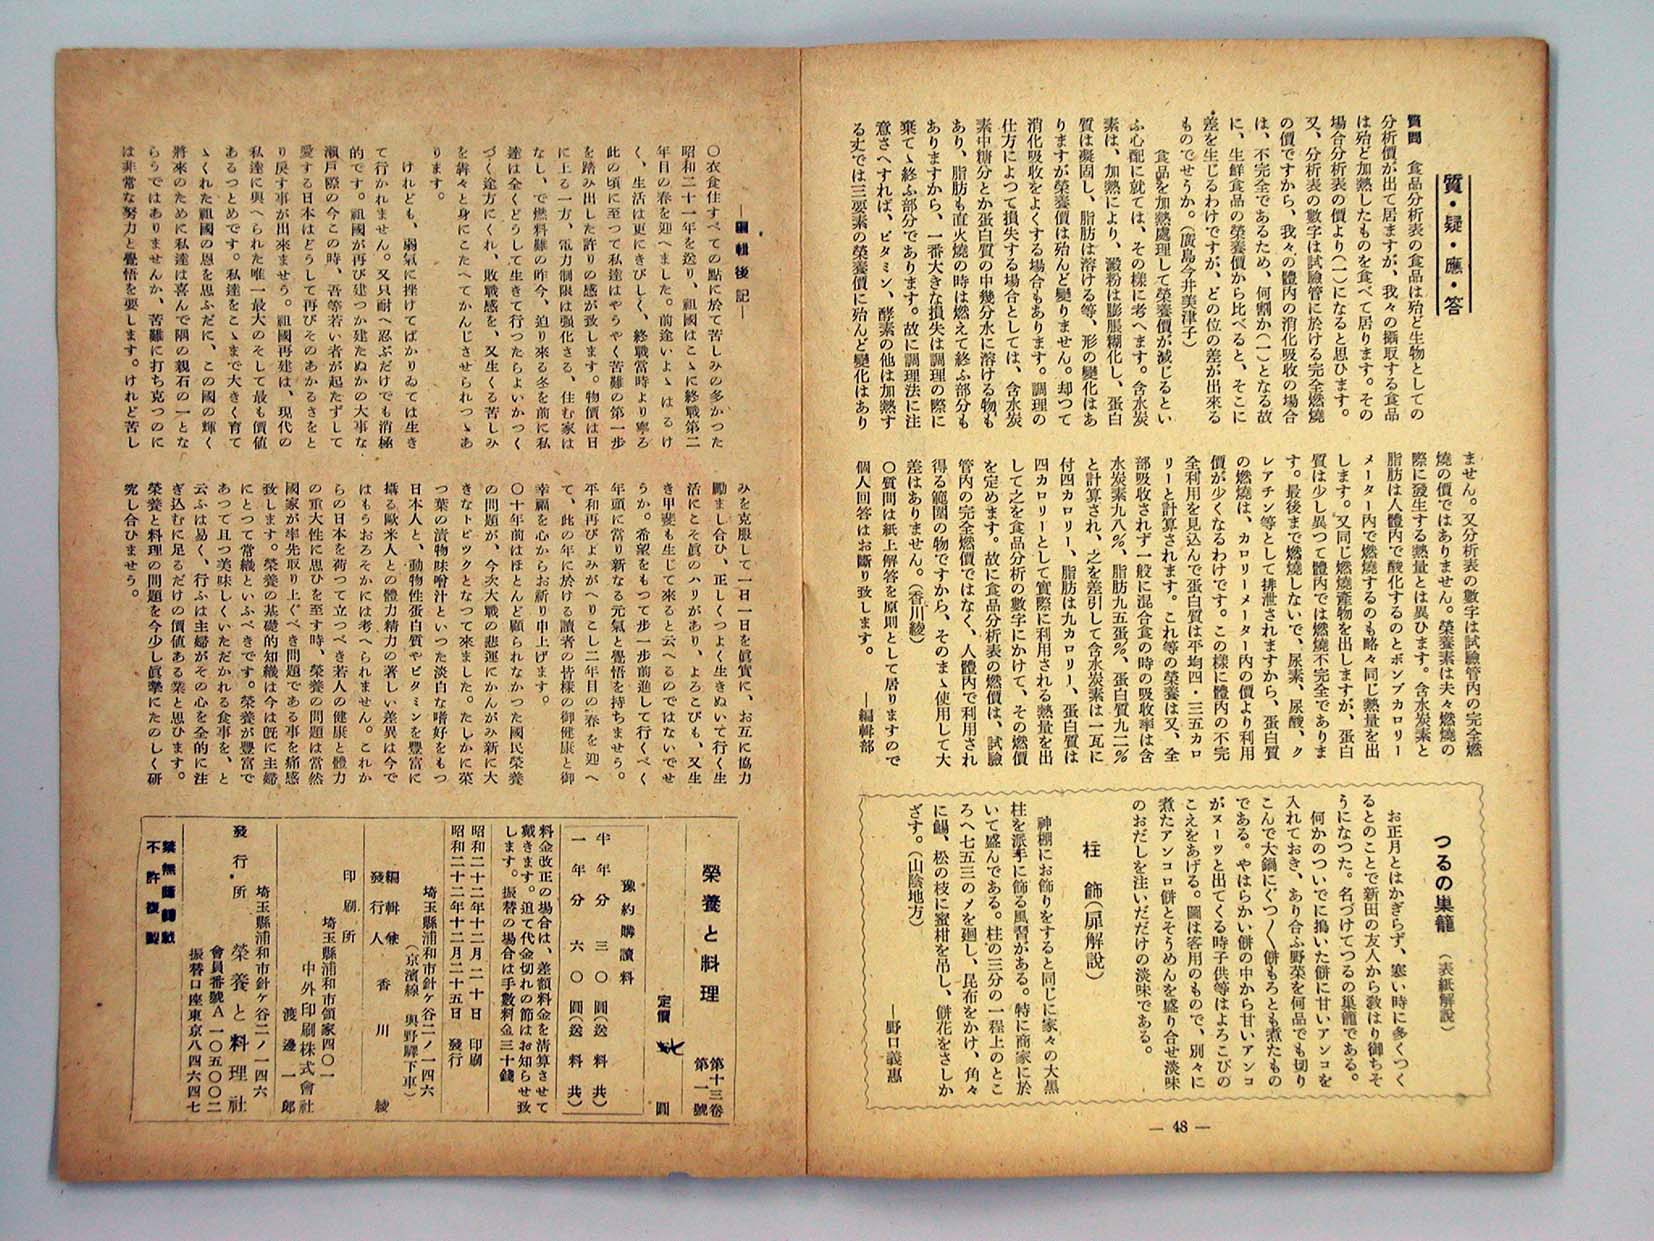 質・疑・應・答
質問　食品分析表の食品は殆ど生物としての
分析價が出て居ますが、我々の攝取する食品
は殆ど加熱したものを食べて居ります。その
場合分析表の價より(一)になると思ひます。
又、分析表の數字は試驗管に於ける完全燃燒
の價ですから、我々の體內の消化吸收の場合
は、不完全であるため、何割か(一)となる故
に、生鮮食品の榮養價から比べると、そこに
差を生じるわけですが、どの位の差が出來る
ものでせうか。(廣島今井美津子)
食品を加熱處理して榮養價が減じるとい
ふ心配に就ては、その樣に考へます。含水炭
素は、加熱により、澱粉は膨脹糊化し、蛋白
質は凝固し、脂肪は溶ける等、形の變化はあ
りますが榮養價は殆んど變りません。却つて
消化吸收をよくする場合もあります。調理の
仕方によつて損失する場合としては、含水炭
素中糖分とか蛋白質の中幾分水に溶ける物も
あり、脂肪も直火燒の時は燃えて終ふ部分も
ありますから、一番大きな損失は調理の際に
棄てゝ終ふ部分であります。故に調理法に注
意さへすれば、ビタミン、酵素の他は加熱す
る丈では三要素の榮養價に殆んど變化はあり
ません。又分析表の數字は試驗管内の完全燃
燒の價ではありません。榮養素は夫々燃燒の
際に發生する熱量とは異ひます。含水炭素と
脂肪は人體內で酸化するのとボンブカロリー
メーター內で燃燒するのも略々同じ熱量を出
します。又同じ燃燒產物を出しますが、蛋白
質は少し異つて體內では燃燒不完全でありま
す。最後まで燃燒しないで、尿素、尿酸、ク
レアチン等として排泄されますから、蛋白質
の燃燒は、カロリーメーター內の價より利用
價が少くなるわけです。この樣に體內の不完
全利用を見込んで蛋白質は平均四・三五カロ
リーと計算されます。これ等の榮養は又、全
部吸收されず一般に混合食の時の吸收率は含
水炭素九八％、脂肪九五蛋％、蛋白質九二％
と計算され、之を差引して含水炭素は一瓦に
付四カロリー、脂肪は九カロリー、蛋白質は
四カロリーとして實際に利用される熱量を出
して之を食品分析の數字にかけて、その燃價
を定めます。故に食品分析表の燃價は、試驗
管內の完全燃價ではなく、人體內で利用され
得る範圍の物ですから、そのまゝ使用して大
差はありません。(香川綾)
〇質問は紙上解答を原則として居りますので
個人回答はお斷り致します。　―編輯部
つるの巢籠（表紙解說）
お正月とはかぎらず、寒い時に多くつく
るとのことで新田の友人から敎はり御ちそ
うになつた。名づけてつるの巢籠である。
何かのついでに搗いた餅に甘いアンコを
入れておき、あり合ふ野菜を何品でも切り
こんで大鍋にぐつ〳〵餅もろとも煮たもの
である。やはらかい餅の中から甘いアンコ
がヌーッと出てくる時子供等はよろこびの
こえをあげる。圖は客用のもので、別々に
煮たアンコロ餅とそうめんを盛り合せ淡味
のおだしを注いだだけの淡味である。
柱　飾（扉解說）
神棚にお飾りをすると同じに家々の大黑
柱を派手に飾る風習がある。特に商家に於
いて盛んである。柱の三分の一程上のとこ
ろへ七五三の〆を廻し、昆布をかけ、角々
に鯣、松の枝に蜜柑を吊し、餅花をさしか
ざす。(山陰地方)
―野口義惠
— 48 —
―編輯後記―
〇衣食住すべての點に於て苦しみの多かつた
昭和二十一年を送り、祖國はこゝに終戰第二
年目の春を迎へました。前途いよゝはるけ
く、生活は更にきびしく、終戰當時より寧ろ
此の頃に至つて私達はやうやく苦難の第一步
を踏み出した許りの感が致します。物價は日
に上る一方、電力制限は强化さる、住む家は
なし、で燃料難の昨今、迫り來る冬を前に私
達は全くどうして生きて行つたらよいかつく
づく途方にくれ、敗戰感を、又生くる苦しみ
を犇々と身にこたへてかんじさせられつゝあ
ります。
けれども、弱氣に挫けてばかりゐては生き
て行かれません。又只耐へ忍ぶだけでも消極
的です。祖國が再び建つか建たぬかの大事な
瀨戶際の今この時、吾等若い者が起たずして
愛する日本はどうして再びそのあかるさをと
り戾す事が出來ませう。祖國再建は、現代の
私達に與へられた唯一最大のそして最も價値
あるつとめです。私達をこゝまで大きく育て
ゝくれた祖國の恩を思ふだに、この國の輝く
將來のために私達は喜んで隅の親石の一とな
らうではありませんか、苦難に打ち克つのに
は非常な努力と覺悟を要します。けれど苦し
みを克服して一日一日を眞實に、お互に協力
勵まし合ひ、正しくつよく生きぬいて行く生
活にこそ眞のハリがあり、よろこびも、又生
き甲斐も生じて來ると云へるのではないでせ
うか。希望をもつて步一步前進して行くべく
年頭に當り新なる元氣と覺悟を持ちませう。
平和再びよみがへりこし二年目の春を迎へ
て、此の年に於ける讀者の皆樣の御健康と御
幸福を心からお祈り申上げます。
〇十年前はほとんど顧られなかつた國民榮養
の問題が、今次大戰の悲運にかんがみ新に大
きなトピックとなつて來ました。たしかに菜
つ葉の漬物味噌汁といつた淡白な嗜好をもつ
日本人と、動物性蛋白質やビタミンを豐富に
攝る歐米人との體力精力の著しい差異は今で
はもうおろそかには考へられません。これか
らの日本を荷つて立つべき若人の健康と體力
の重大性に思ひを至す時、榮養の問題は當然
國家が率先取り上ぐべき問題である事を痛感
致します。榮養の基礎的知識は今は旣に主婦
にとつて常識といふべきです。榮養が豐富で
あつて且つ美味しくいただかれる食事を、と
云ふは易く、行ふは主婦がその心を全的に注
ぎ込むに足るだけの價値ある業と思ひます。
榮養と料理の問題を今少し眞摯にたのしく硏
究し合ひませう。
榮養と料理　第十三卷　第一號
定價　圓
豫約購讀料
半年分　三〇圓(送料共)
一年分　六〇圓(送料共)
料金改正の場合は、差額料金を淸算させて
戴きます。追て代金切れの節はお知らせ致
します。振替の場合は手數料金三十錢
昭和二十二年十二月二十日　印刷
昭和二十二年十二月二十五日　發行
埼玉縣浦和市針ケ谷二ノ一四六
（京濱線　與野驛下車）
編輯兼發行人　香川綾
埼玉縣浦和市領家四〇一
中外印刷株式會社
印刷所　渡邊一郎
埼玉縣浦和市針ケ谷二ノ一四六
發行所　榮養と料理社
會員番號A一〇五〇〇二
振替口座東京八四六四七
禁無斷轉載
不許複製